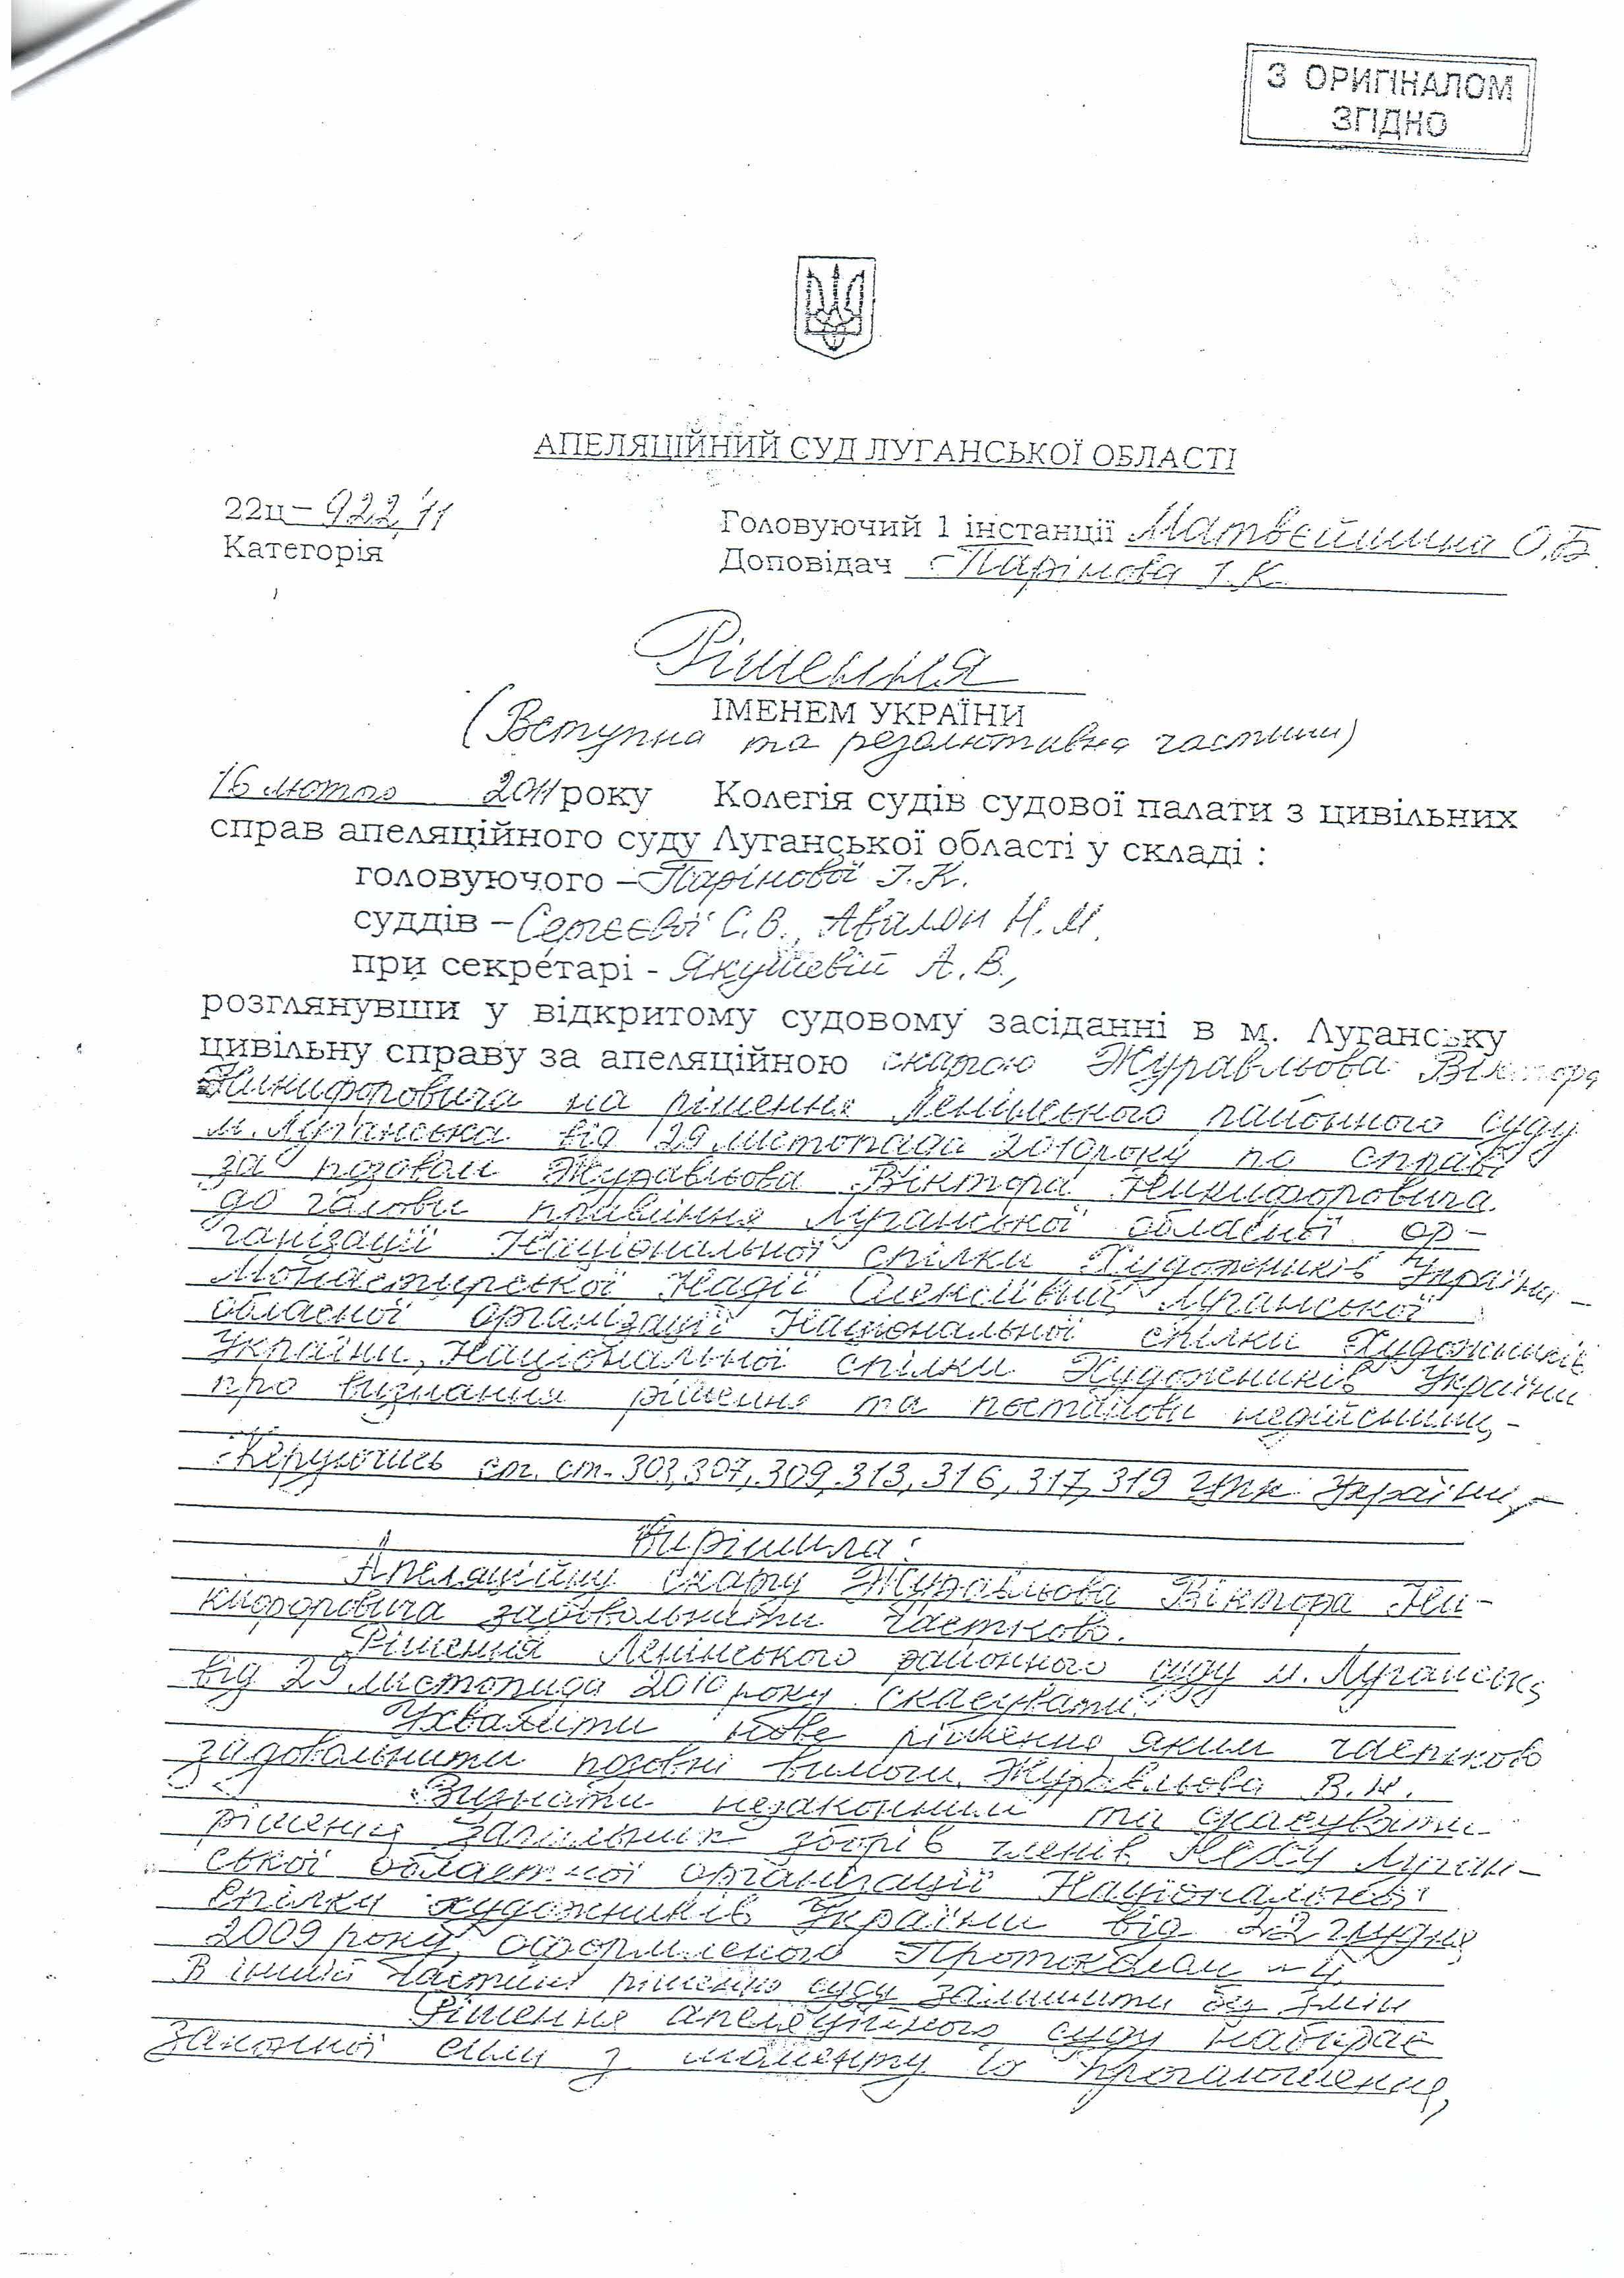 З ОРИГІНАЛОМ
ЗГІДНО
АПЕЛЯЦІЙНИЙ СУД ЛУГАНСЬКОЇ ОБЛАСТІ
22ц – 922/11
Головуючий 1 інстанції Матвєйшина О.Б.
Категорія
Доповідач Парінова І.К.
Рішення
ІМЕНЕМ УКРАЇНИ
(Вступна та резолютивна частини)
16 лютого 2011 року Колегія судів судової палати з цивільних
справ апеляційного суду Луганської області у складі :
головуючого – Парінової І.К.
суддів – Сергєєвої С.В., Авалян Н.М.
при секретарі - Якушевій А.В.,
розглянувши у відкритому судовому засіданні в м. Луганську
цивільну справу за апеляційною скаргою Журавльова Віктора
Никифоровича на рішення Ленінського районного суду
м. Луганська від 29 листопада 2010 року по справі
за позовом Журавльова Віктора Никифоровича
до голови правління Луганської обласної ор-
ганізації Національної спілки Художників України -
Монастирської Надії Олексіївни, Луганської
обласної організації Національної спілки Художників
України, Національної спілки Художників України
про визнання рішення та постанови недійсними, -
Керуючись ст. ст. 303, 307, 309, 313, 316, 317, 319 ЦПК України, -
Вирішила:
Апеляційну скаргу Журавльова Віктора Ни-
кифоровича задовольнити частково.
Рішення Ленінського районного суду м. Луганська
від 29 листопада 2010 року скасувати.
Ухвалити нове рішення, яким частково
задовольнити позовні вимоги Журавльова В.Н.
Визнати незаконним та скасувати
рішення Загальних зборів членів НСХУ Луган-
ської обласної організації Національної
Спілки художників України від 22 грудня
2009 року, оформленого Протоколом
В іншій частині рішення суду залишити без змін
Рішення апеляційного суду набирає
законної сили з моменту його проголошення,